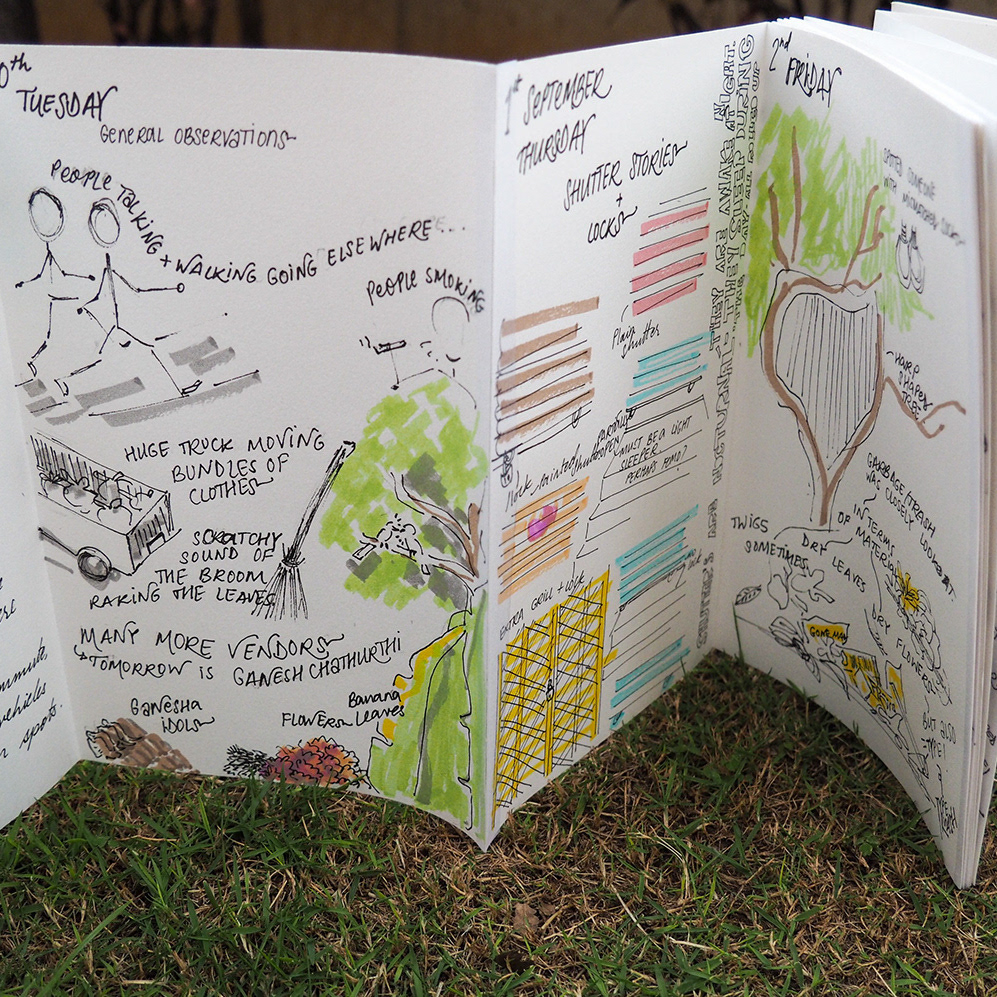 0th
TUESDAY
GENERAL OBSERVATIONS
PEOPLE TALKING + WALKING GOING ELSEWHERE...
PEOPLE SMOKING
HUGE TRUCK MOVING
BUNDLES OF
CLOTHES
SCRATCHY
SOUND OF
THE BROOM
RAKING THE LEAVES
MANY MORE VENDORS
TOMORROW IS GANESH CHATHURTHI
GANESHA
IDOLS
FLOWERS
Banana
Leaves
vehicles
spots.
1st SEPTEMBER
THURSDAY
SHUTTER STORIES
+
LOCKS
Plain
shutter
MUST BE A LIGHT
SLEEPER.
PERHAPS FOMO?
EXTRA GRILL + LOCK
THEY ARE AWAKE AT NIGHT.
THEY SLEEP DURING
2nd
FRIDAY
SPOTTED SOMEONE
WITH MISMATCHED
HARP
SHAPED
TREE
GARBAGE/TRASH
WAS CLOSELY
LOOKED AT.
IN TERMS
OF
MATERIAL
TWIGS
SOMETIMES
DRY
LEAVES
DRY
FLOWERS
BUT ALSO